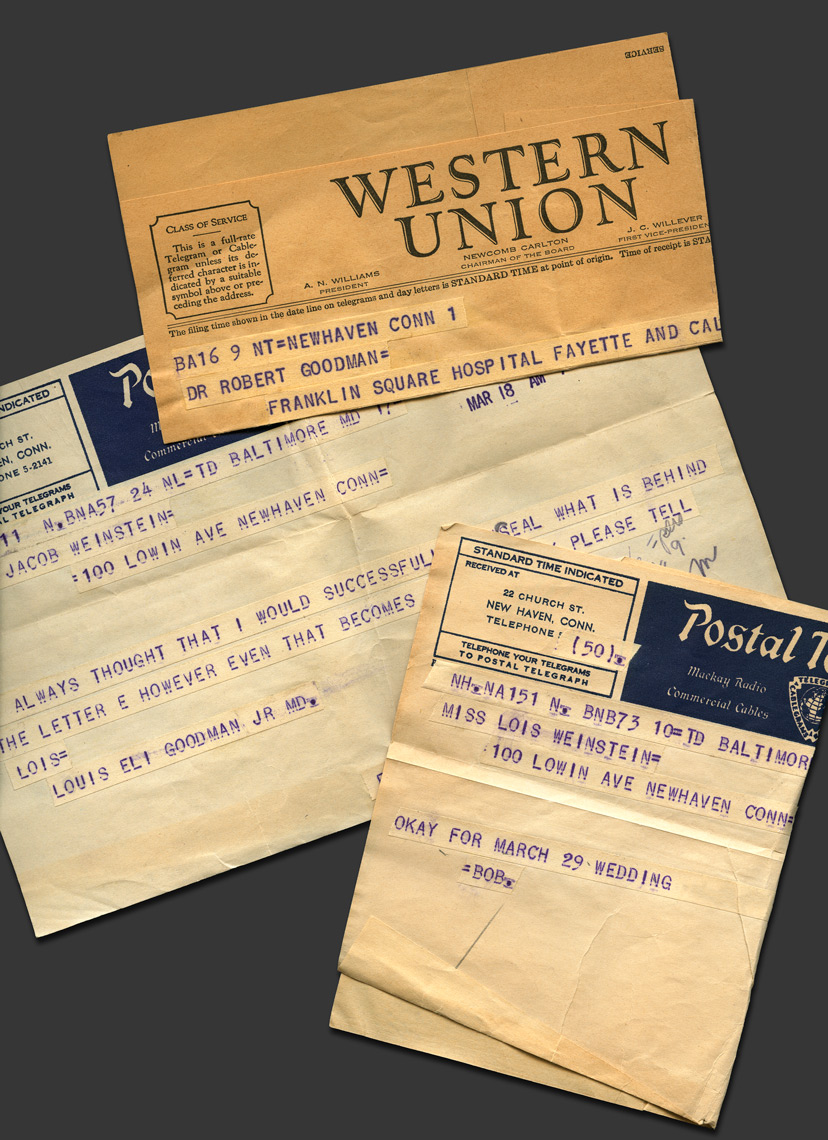 SERVICE
WESTERN
UNION
CLASS OF SERVICE
This is a full-rate
Telegram or Cable-
gram unless its de-
ferred character is in-
dicated by a suitable
symbol above or pre-
ceding the address.
A. N. WILLIAMS
PRESIDENT
NEWCOMB CARLTON
CHAIRMAN OF THE BOARD
J. C. WILLEVER
FIRST VICE-PRESIDEN
The filing time shown in the date line on telegrams and day letters is STANDARD TIME at point of origin. Time of receipt is STA
BA16 9 NT=NEWHAVEN CONN 1
DR ROBERT GOODMAN=
FRANKLIN SQUARE HOSPITAL FAYETTE AND CAL
NDICATED
CH ST.
EN, CONN.
ONE 5-2141
YOUR TELEGRAMS
AL TELEGRAPH
Po
M
Commercial
MAR 18 AM
11 N.BNA57 24 NL=TD BALTIMORE MD
JACOB WEINSTEIN=
=100 LOWIN AVE NEWHAVEN CONN=
ALWAYS THOUGHT THAT I WOULD SUCCESSFULL SEAL WHAT IS BEHIND
THE LETTER E HOWEVER EVEN THAT BECOMES PLEASE TELL
LOIS=
LOUIS ELI GOODMAN JR MD.
STANDARD TIME INDICATED
RECEIVED AT
22 CHURCH ST.
NEW HAVEN, CONN.
TELEPHONE
(50).
TELEPHONE YOUR TELEGRAMS
TO POSTAL TELEGRAPH
Postal T
Mackay Radio
Commercial Cables
NH. NA151 N. BNB73 10=TD BALTIMOR
MISS LOIS WEINSTEIN=
100 LOWIN AVE NEWHAVEN CONN=
OKAY FOR MARCH 29 WEDDING
=BOB.